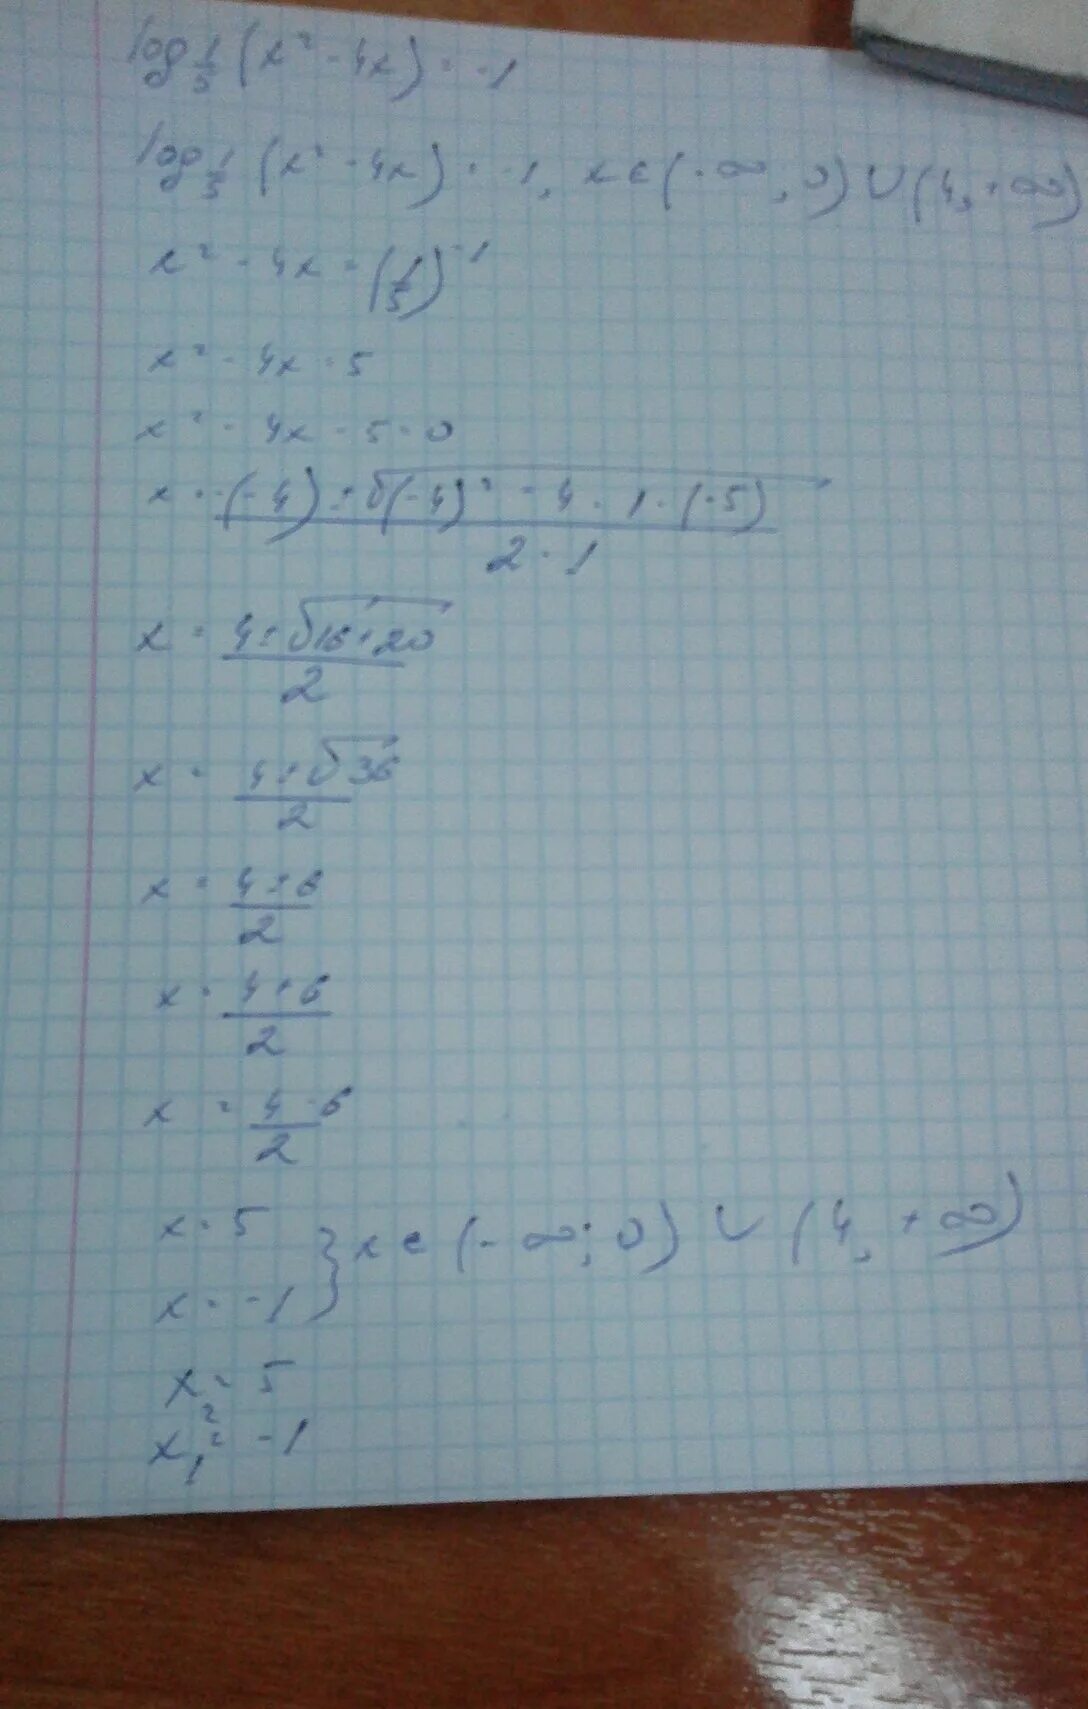 log 1/5 (x² - 4x) = -1
log 1/5 (x² - 4x) = -1, x ∈ (-∞, 0) ∪ (4, +∞)
x² - 4x = (1/5)⁻¹
x² - 4x = 5
x² - 4x - 5 = 0
x = (-(-4) ± √((-4)² - 4 · 1 · (-5))) / (2 · 1)
x = (4 ± √(16 + 20)) / 2
x = (4 ± √36) / 2
x = (4 ± 6) / 2
x = (4 + 6) / 2
x = (4 - 6) / 2
x = 5
x = -1 } x ∈ (-∞; 0) ∪ (4, +∞)
x₂ = 5
x₁ = -1